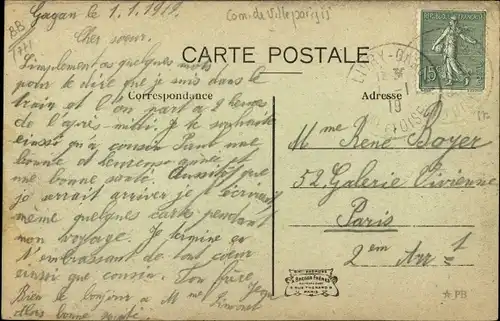 BB
771
Gagan le 1.1.1919.
Com. de Villeparisis
Cher soeur.
CARTE POSTALE
REPUBLIQUE FRANÇAISE
15
LIVRY-GARGAN
Correspondance
Adresse
Simplement quelques mots
pour te dire que je suis dans le
train et l'on part a 2 heures
de l'apres-midi. Je te souhaite
ainsi qu'a cousin Paul une
bonne et heureuse année et
une bonne santé. Aussitôt que
je serait arriver je t'écrirai
même quelques carte pendant
mon voyage. Je termine en
t'embrassant de tout coeur
ainsi que cousin. Ton frère
Bien le bonjour a Mme
alors bonne santé
Mme René Boyer
52 Galerie Vivienne
Paris
2em Arr-t
PARIS
PB